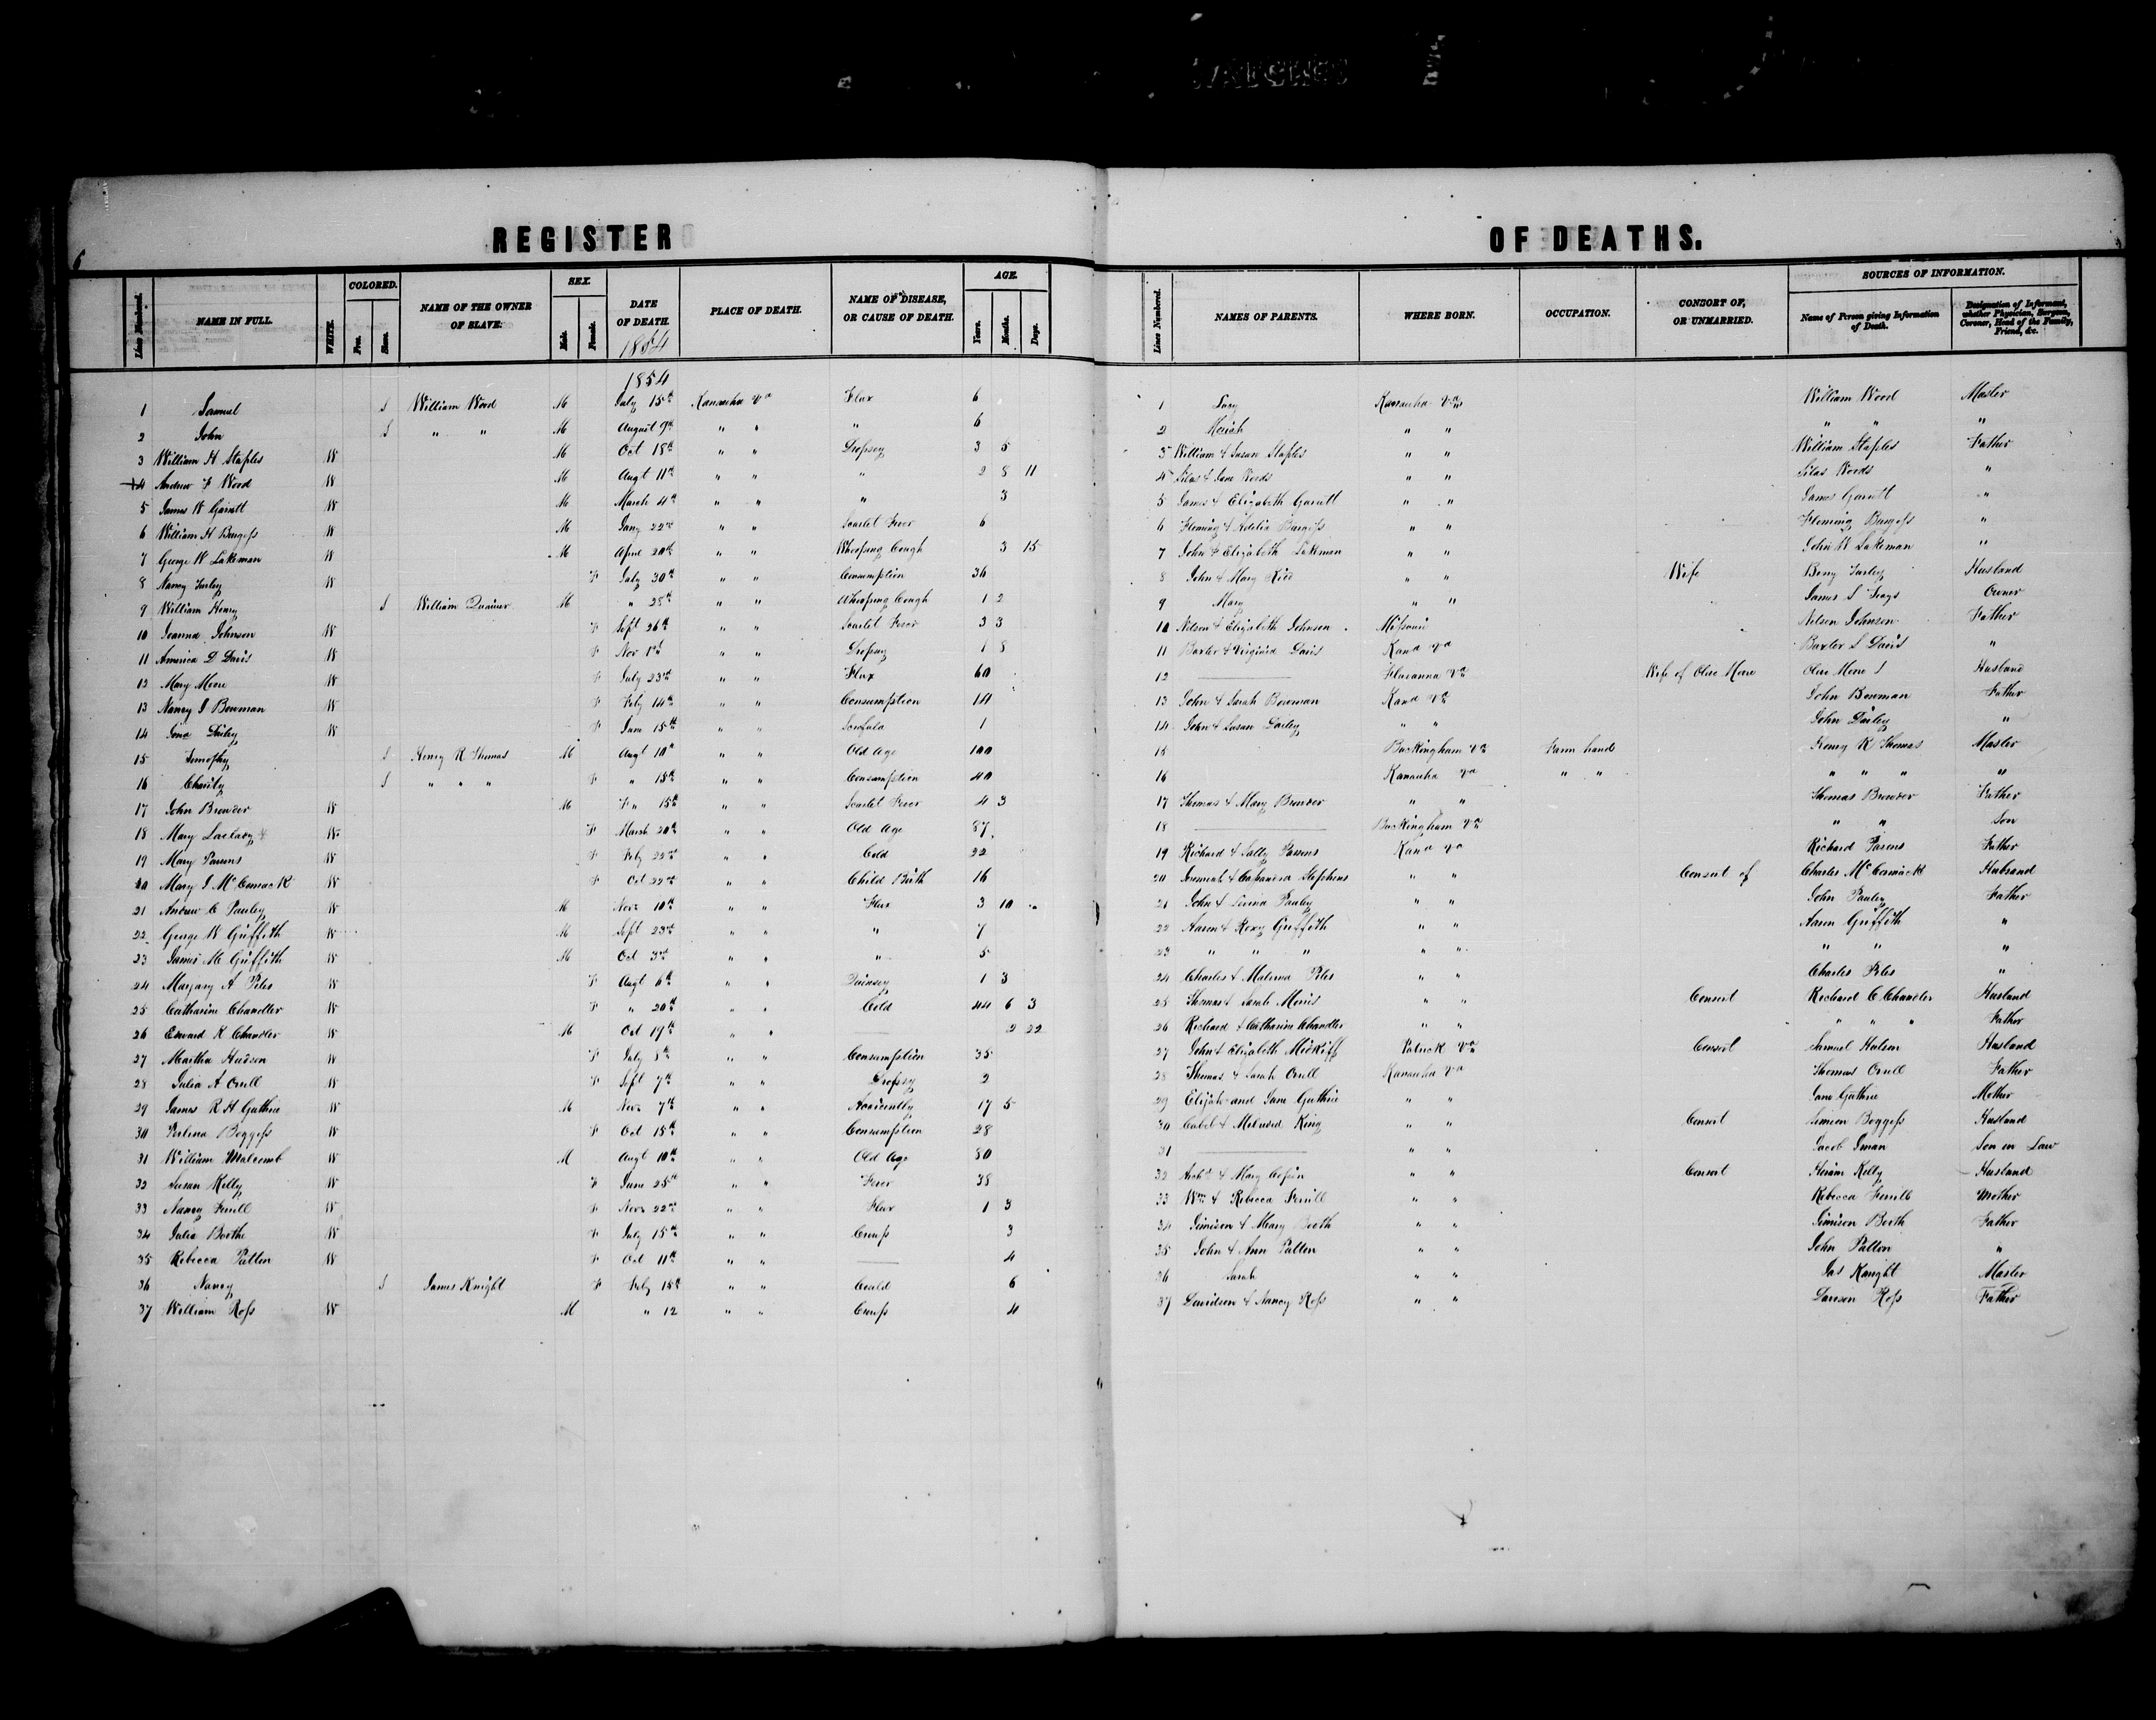 REGISTER OF DEATHS.
6
Lines Numbered. NAME IN FULL. WHITE. COLORED. Free. Slave. NAME OF THE OWNER OF SLAVE. SEX. Male. Female. DATE OF DEATH. 1854 PLACE OF DEATH. NAME OF DISEASE, OR CAUSE OF DEATH. AGE. Years. Months. Days. Lines Numbered. NAMES OF PARENTS. WHERE BORN. OCCUPATION. CONSORT OF, OR UNMARRIED. SOURCES OF INFORMATION. Name of Person giving Information of Death. Designation of Informant, whether Physician, Surgeon, Coroner, Head of the Family, Friend, &c.
1854
1 Samuel S William Wood M July 15th Kanawha Va Flux 6 1 Lucy Kanawha Va William Wood Master
2 John S " " M August 9th " " " 6 2 Mariah " " " " "
3 William H Staples W M Oct 18th " " Dropsey 3 5 3 William & Susan Staples " " William Staples Father
4 Andrew F Wood W M Augt 11th " " " 2 8 11 4 Silas & Jane Woods " " Silas Woods "
5 James W Garratt W M March 4th " " " 3 5 James & Elizabeth Garratt " " James Garratt "
6 William H Burgess W M Jany 22nd " " Scarlet Fever 6 6 Fleming & Adelia Burgess " " Fleming Burgess "
7 George W Lakeman W M April 20th " " Whooping Cough 3 15 7 John & Elizabeth Lakeman " " John W Lakeman "
8 Nancy Turley W F July 30th " " Consumption 36 8 John & Mary " " Wife Turley Husband
9 William Henry S William M " 28th " " Whooping Cough 1 2 9 Mary " " James S Owner
10 Joanna Johnson W F Sept 26th " " Scarlet Fever 3 3 10 Nelson & Elizabeth Johnson Missouri Nelson Johnson Father
11 America D Davis W F Nov 1st " " Dropsy 1 8 11 Baxter & Virginia Davis Kana Va Baxter L Davis "
12 Mary Moore W F July 23rd " " Flux 60 12 Fluvanna Va Wife of Olive Moore Olive Moore Husband
13 Nancy J Bowman W F Feby 14th " " Consumption 14 13 John & Sarah Bowman Kana Va John Bowman Father
14 W F June 15th " " Scrofula 1 14 John & Susan " " John "
15 Timothy S Henry R Thomas M Augt 10th " " Old Age 100 15 Buckingham Va Farm hand Henry R Thomas Master
16 Charity S " " " F " 15th " " Consumption 40 16 Kanawha Va " " " " " "
17 John Browder W M 15th " " Scarlet Fever 4 3 17 Thomas & Mary Browder " " Thomas Browder Father
18 Mary W F March 20th " " Old Age 87 18 Buckingham Va " " Son
19 Mary Parsons W F Feby 22nd " " Cold 22 19 Richard & Sally Parsons Kana Va Richard Parsons Father
20 Mary J McCormack W F Oct 22nd " " Child Birth 16 20 Jeremiah & Stephens " " Consort of Charles McCormack Husband
21 Andrew C Pauley W M Nov 10th " " Flux 3 10 21 John & Levina Pauley " " John Pauley Father
22 George W Griffith W M Sept 23rd " " " 7 22 Aaron & Roxy Griffith " " Aaron Griffith "
23 James M Griffith W M Oct 3rd " " " 5 23 " " " " " " " "
24 Margary A Piles W F Augt 6th " " Quinsey 1 3 24 Charles & Malvina Piles " " Charles Piles "
25 Catharine Chandler W F " 20th " " Cold 44 6 3 25 Thomas & Sarah Morris " " Consort Richard C Chandler Husband
26 Edward R Chandler W M Oct 19th " " 2 22 26 Richard & Catharine Chandler " " " " " Father
27 Martha Hudson W F July 8th " " Consumption 35 27 John & Elizabeth Patrick Va Consort Samuel Husband
28 Julia A Orrill W F Sept 7th " " Dropsy 2 28 Thomas & Sarah Orrill Kanawha Va Thomas Orrill Father
29 James R H Guthrie W M Nov 7th " " Accidently 17 5 29 Elijah and Jane Guthrie " " Jane Guthrie Mother
30 Perlina Boggess W F Oct 15th " " Consumption 28 30 & Mildred King " " Consort Simeon Boggess Husband
31 William Malcomb W M Augt 10th " " Old Age 80 31 " " Jacob Son in Law
32 Susan Kelly W F June 25th " " Fever 38 32 & Mary " " Consort Hiram Kelly Husband
33 Nancy Ferrill W F Nov 22nd " " Flux 1 3 33 Wm & Rebecca Ferrill " " Rebecca Ferrill Mother
34 Julia Boothe W F July 15th " " Croup 3 34 Jimison & Mary Booth " " Jimison Booth Father
35 Rebecca Patten W F Oct 11th " " 4 35 John & Ann Patten " " John Patten "
36 Nancy S James Knight F Feby 15th " " Coald 6 36 Sarah " " Jas Knight Master
37 William Ross W M " 12 " " Croup 4 37 Davidson & Nancy Ross " " Ross Father